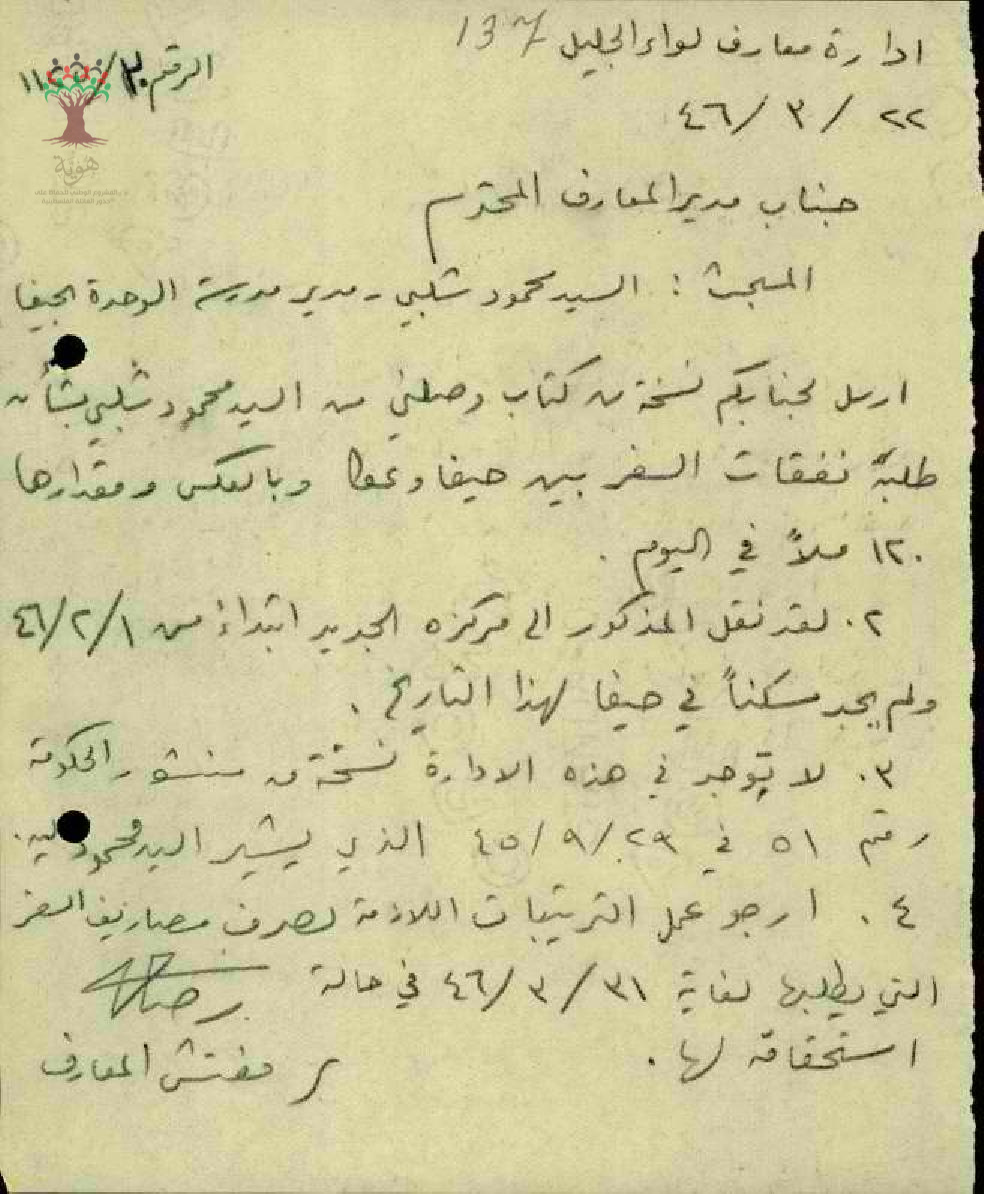 ادارة معارف لواء الجليل 137
الرقم
٢٢ / ٣ / ٤٦
هوية
جناب مدير المعارف المحترم
المبحث : السيد محمود شلبي - مدير مدرسة الوحدة بحيفا
ارسل لجنابكم نسخة من كتاب وصلني من السيد محمود شلبي بشأن
طلبه نفقات السفر بين حيفا وعكا وبالعكس ومقدارها
١٢٠ ملاً في اليوم .
٢ . لقد نقل المذكور الى مركزه الجديد ابتداء من ٤٦/٢/١
ولم يجد مسكناً في حيفا لهذا التاريخ .
٣ . لا توجد في هذه الادارة نسخة من منشور الحكومة
رقم ٥١ في ٤٥/٩/٢٩ الذي يشير السيد محمود اليه .
٤ . ارجو عمل الترتيبات اللازمة لصرف مصاريف السفر
التي يطلبها لغاية ٤٦/٣/٣١ في حالة
استحقاقه لها .
مفتش المعارف